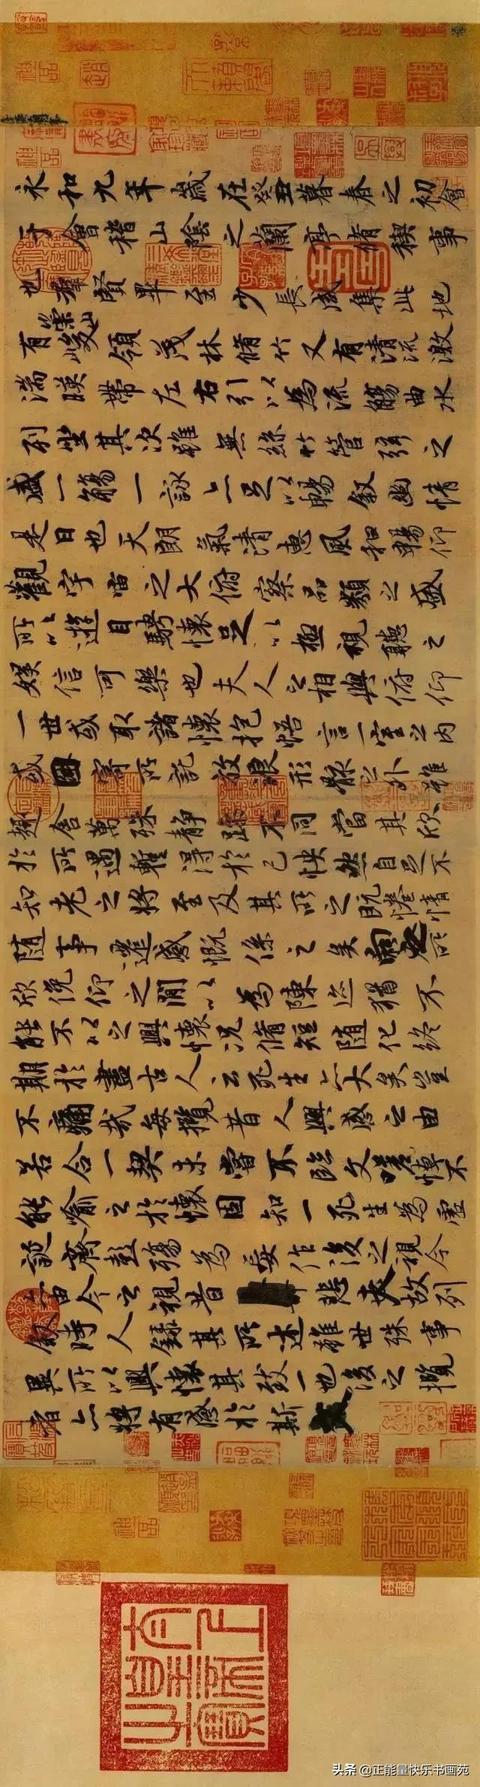 永和九年歲在癸丑暮春之初會
于會稽山陰之蘭亭脩稧事
也群賢畢至少長咸集此地
有崇山峻領茂林脩竹又有清流激
湍暎帶左右引以為流觴曲水
列坐其次雖無絲竹管弦之
盛一觴一詠亦足以暢敘幽情
是日也天朗氣清惠風和暢仰
觀宇宙之大俯察品類之盛
所以遊目騁懷足以極視聽之
娛信可樂也夫人之相與俯仰
一世或取諸懷抱悟言一室之內
或因寄所託放浪形骸之外雖
趣舍萬殊靜躁不同當其欣
於所遇蹔得於己怏然自足不
知老之將至及其所之既惓情
隨事遷感慨係之矣向之所
欣俛仰之閒以為陳迹猶不
能不以之興懷況脩短隨化終
期於盡古人云死生亦大矣豈
不痛哉每攬昔人興感之由
若合一契未嘗不臨文嗟悼不
能喻之於懷固知一死生為虛
誕齊彭殤為妄作後之視今
亦由今之視昔悲夫故列
敘時人錄其所述雖世殊事
異所以興懷其致一也後之攬
者亦將有感於斯文
头条 @正能量快乐书画苑